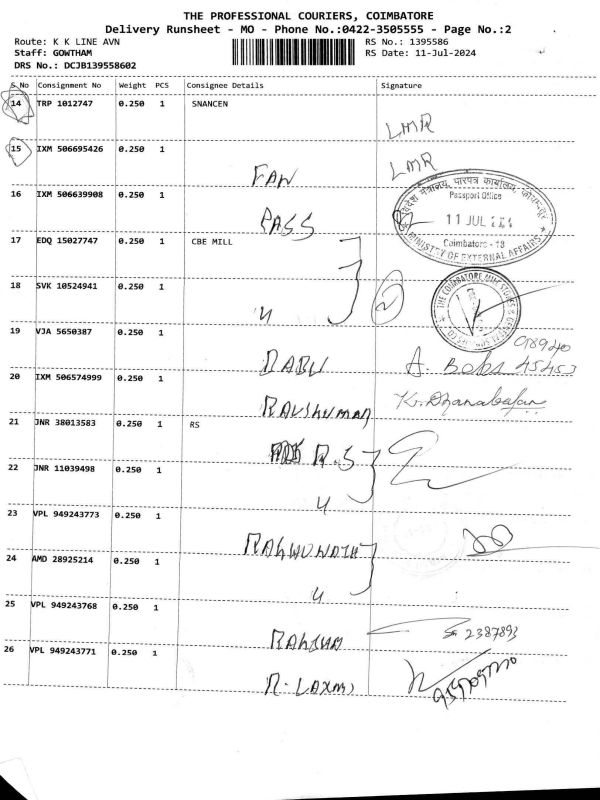 THE PROFESSIONAL COURIERS, COIMBATORE
Delivery Runsheet - MO - Phone No.:0422-3505555 - Page No.:2
Route: K K LINE AVN
RS No.: 1395586
Staff: GOWTHAM
RS Date: 11-Jul-2024
DRS No.: DCJB139558602
S No Consignment No Weight PCS Consignee Details Signature
14 TRP 1012747 0.250 1 SNANCEN
LMR
15 IXM 506695426 0.250 1
LMR
FAW
16 IXM 506639908 0.250 1
PASS
विदेश मंत्रालय, पारपत्र कार्यालय,
Passport Office
11 JUL
Coimbatore - 18
MINISTRY OF EXTERNAL AFFAIRS
17 EDQ 15027747 0.250 1 CBE MILL
18 SVK 10524941 0.250 1
"
THE COIMBATORE MILL STORES &
19 VJA 5650387 0.250 1
BABU
A. Babu
98940
45453
20 IXM 506574999 0.250 1
K. Dhanabalan
21 JNR 38013583 0.250 1 RS
R.S
22 JNR 11039498 0.250 1
"
23 VPL 949243773 0.250 1
RAGHUNATH
24 AMD 28925214 0.250 1
"
25 VPL 949243768 0.250 1
2387893
26 VPL 949243771 0.250 1
R-LAXMI